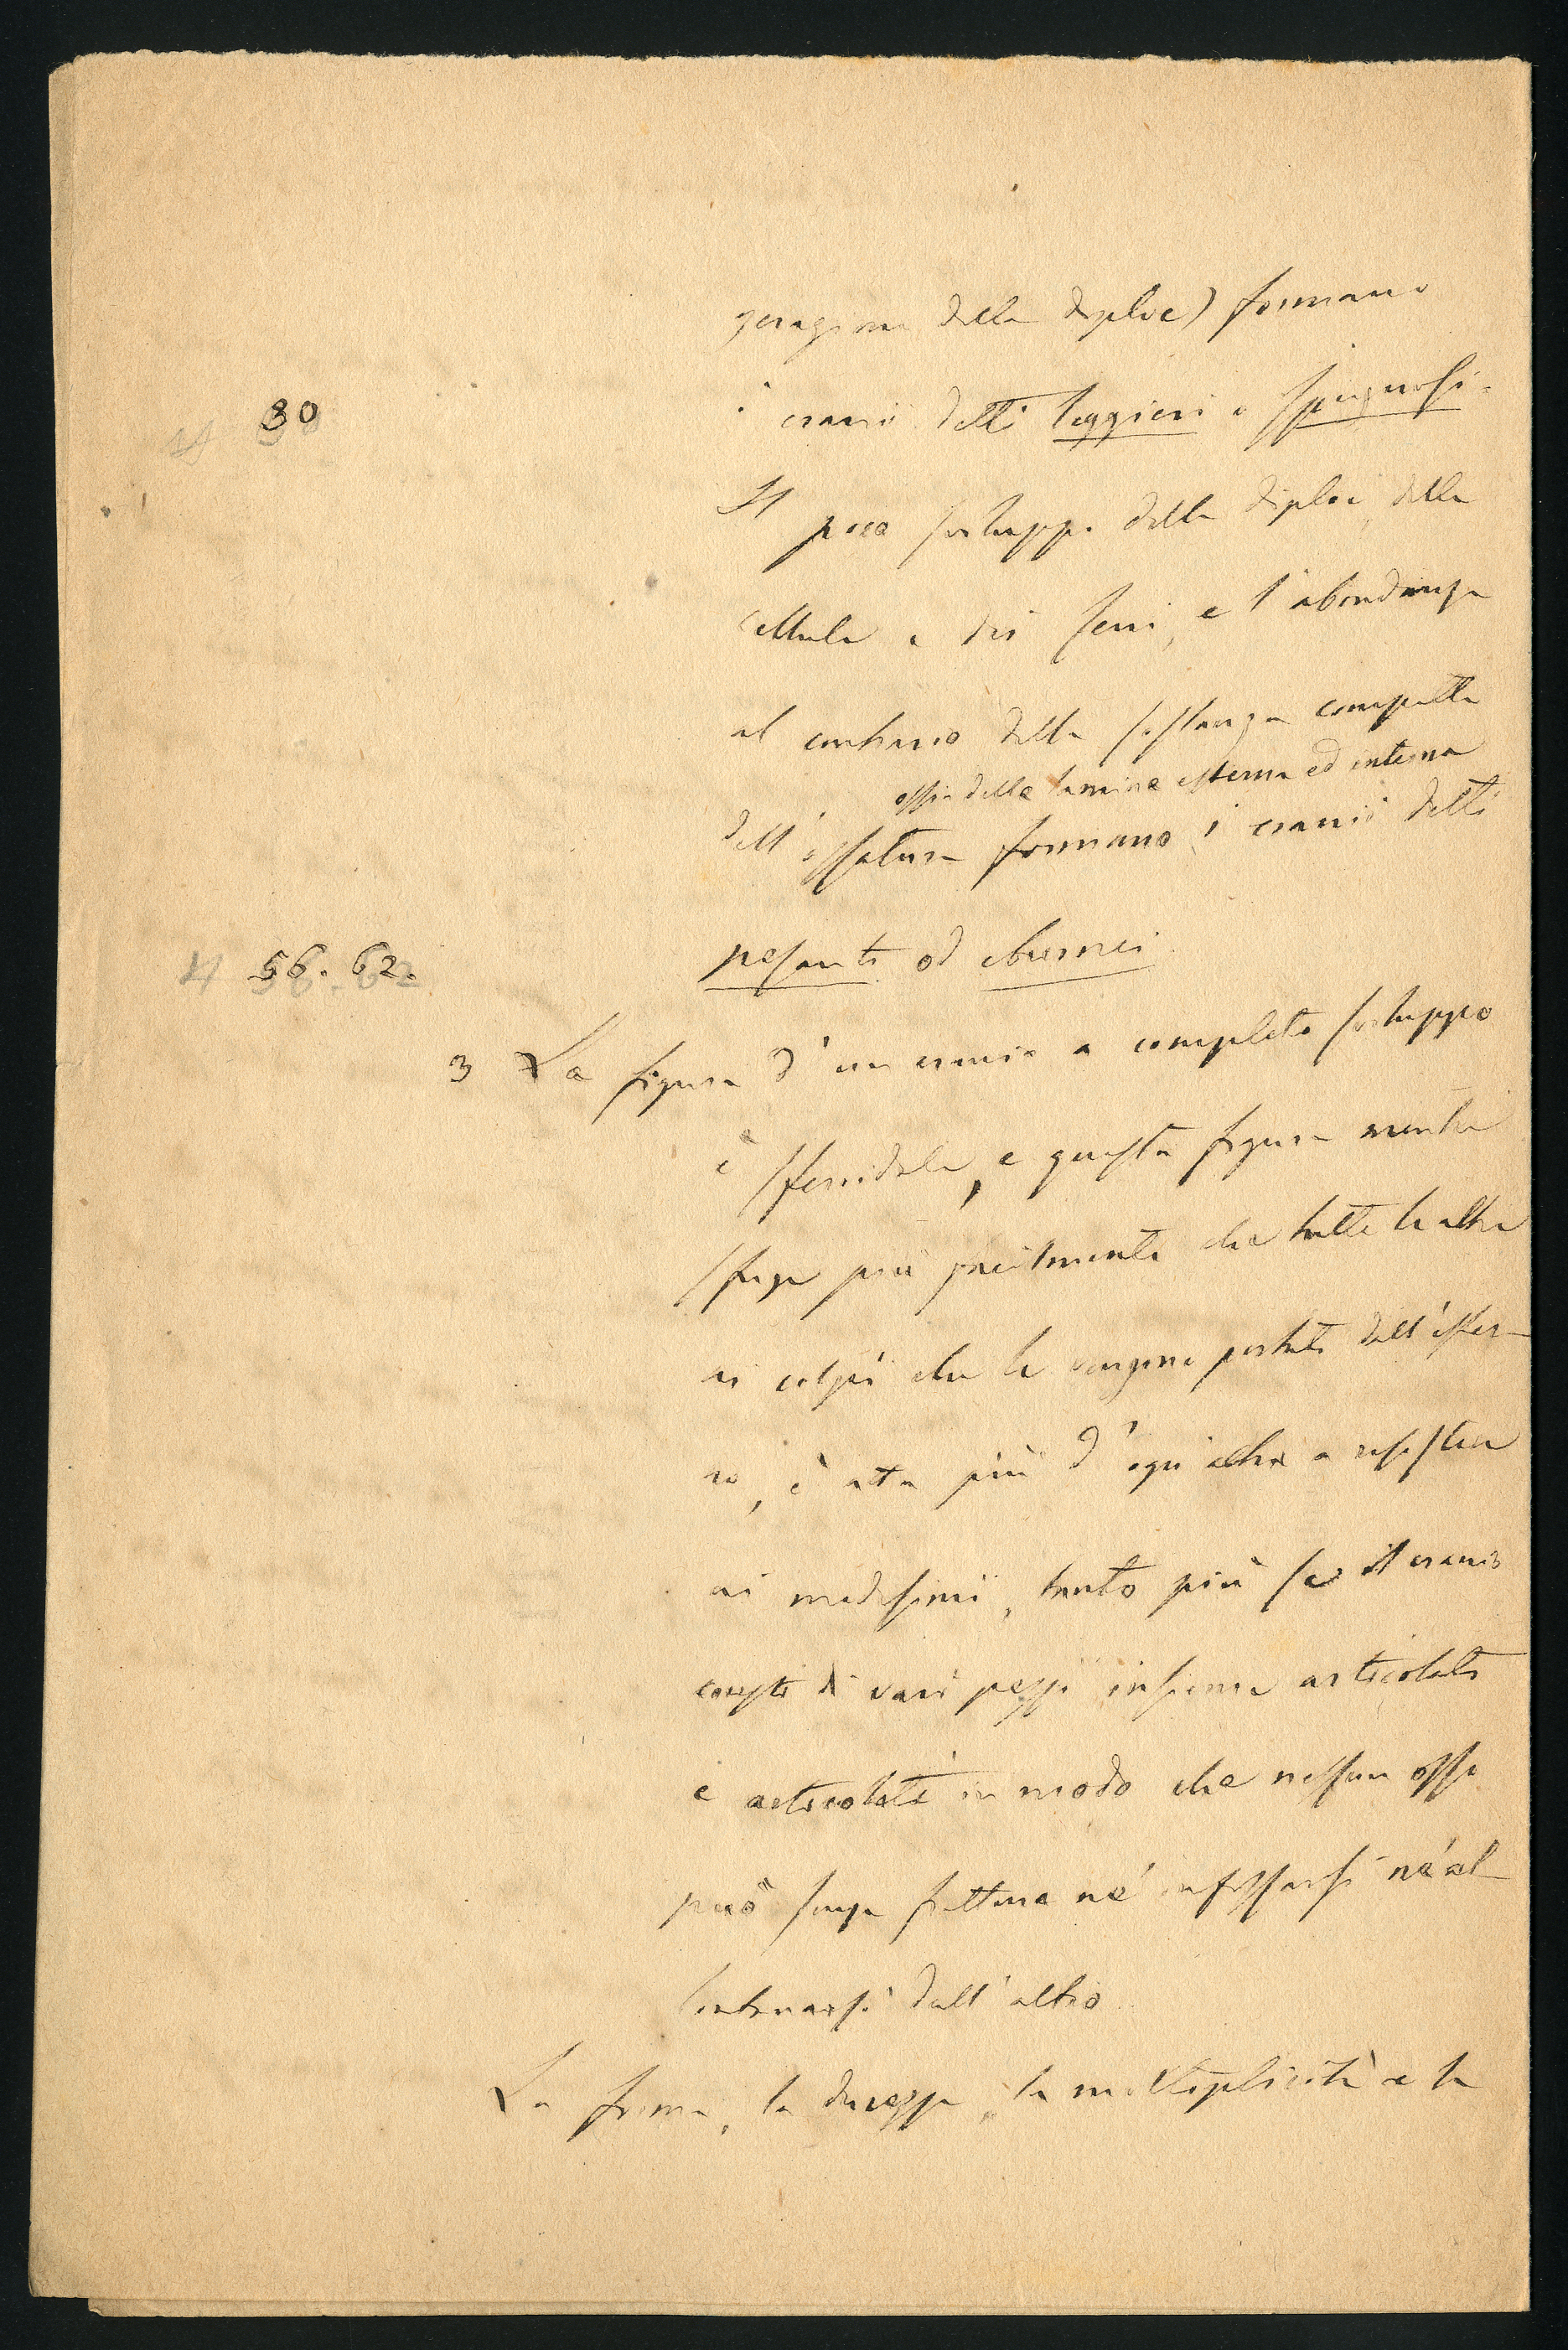 gerazione della diploe) formano
30
i crani detti leggieri e spugnosi.
Il poco sviluppo della diploe, delle
cellule e dei seni, e l'abondanza
al contrario della sostanza compatta
ossia delle lamine esterna ed interna
dell'ossatura formano i cranii detti
4 56. 62.
pesanti od eburnei
3 La figura d'un cranio a completo sviluppo
è sferoidale, e questa figura mentre
sfugge più facilmente che tutte le altre
ai colpi che le vengono portati dall'ester-
no, è atta più d'ogni altra a resistere
ai medesimi, tanto più se il cranio
consti di vari pezzi insieme articolati
e articolati in modo che nessun osso
può senza frattura né infossarsi né al-
lontanarsi dall'altro.
La forma, la durezza, la molteplicità e la